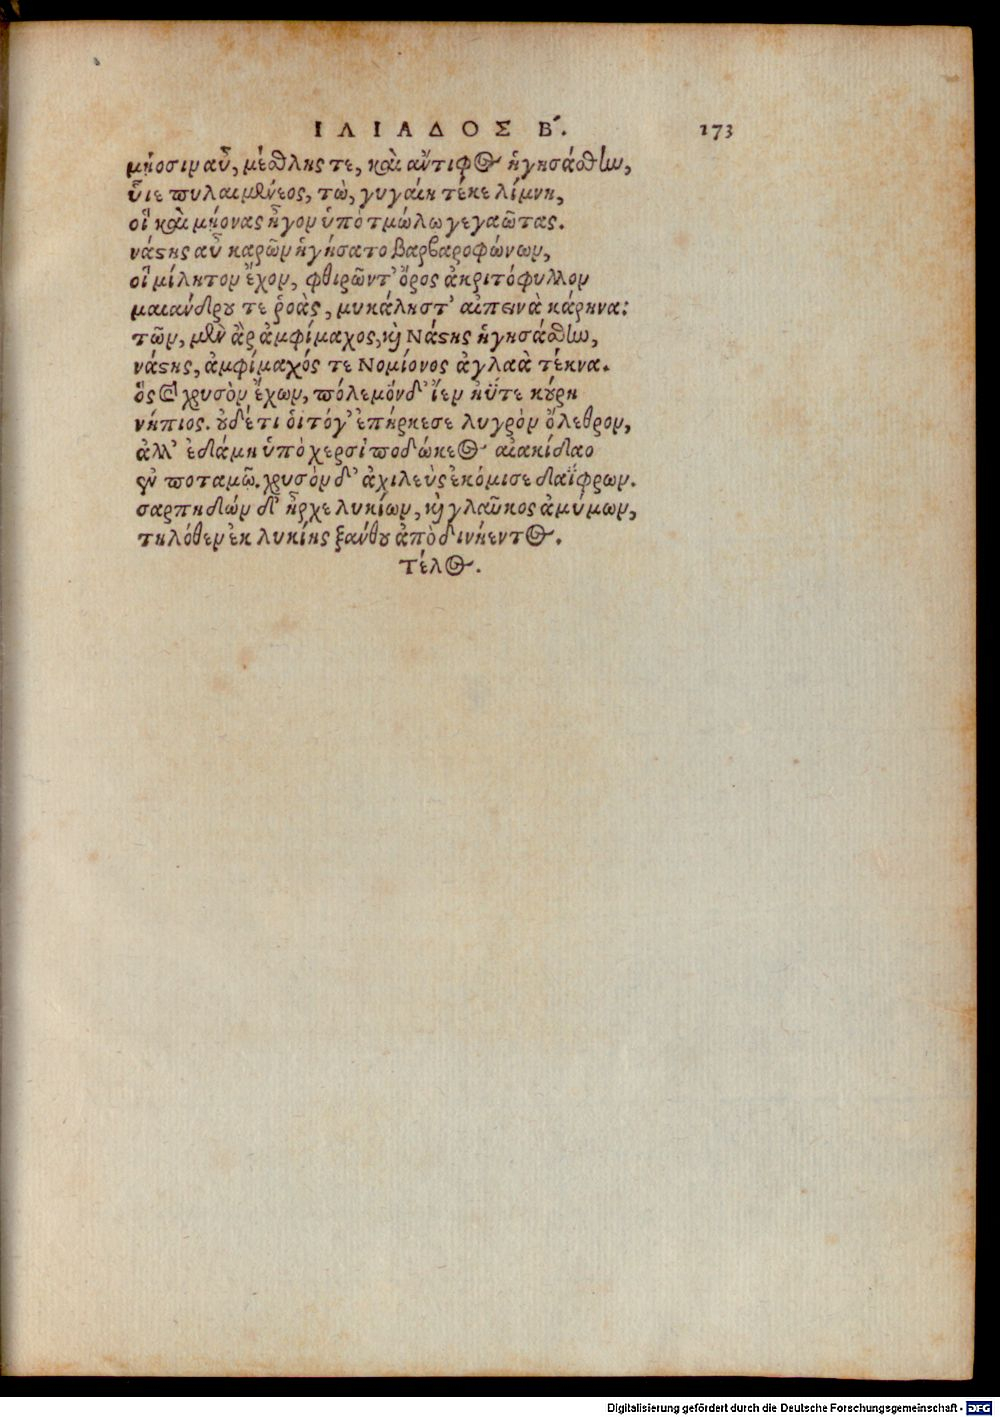 ΙΛΙΑΔΟΣ Β΄. 173
μῄοσιν αὖ, μέσθλης τε, καὶ ἄντιφος ἡγησάσθην,
ὗιε πυλαιμένεος, τὼ, γυγαίη τέκε λίμνη,
οἳ καὶ μῄονας ἦγον ὑπὸ τμώλω γεγαῶτας.
νάστης αὖ καρῶν ἡγήσατο βαρβαροφώνων,
οἳ μίλητον ἔχον, φθιρῶντ᾽ ὄρος ἀκριτόφυλλον
μαιάνδρου τε ῥοὰς, μυκάληστ᾽ αἰπεινὰ κάρηνα:
τῶν, μὲν ἂρ ἀμφίμαχος, καὶ Νάστης ἡγησάσθην,
νάστης, ἀμφίμαχός τε Νομίονος ἀγλαὰ τέκνα.
ὅς καὶ χρυσὸν ἔχων, πόλεμόνδ᾽ ἴεν ἠΰτε κούρη
νήπιος. οὐδέτι ὁιτόγ᾽ ἐπήρκεσε λυγρὸν ὄλεθρον,
ἀλλ᾽ ἐδάμη ὑπὸ χερσὶ ποδώκεος αἰακίδαο
ἐν ποταμῷ. χρυσὸν δ᾽ ἀχιλεὺς ἐκόμισε δαΐφρων.
σαρπηδὼν δ᾽ ἦρχε λυκίων, καὶ γλαῦκος ἀμύμων,
τηλόθεν ἐκ λυκίης ξάνθου ἀπὸ δινήεντος.
Τέλος.
Digitalisierung gefördert durch die Deutsche Forschungsgemeinschaft - DFG